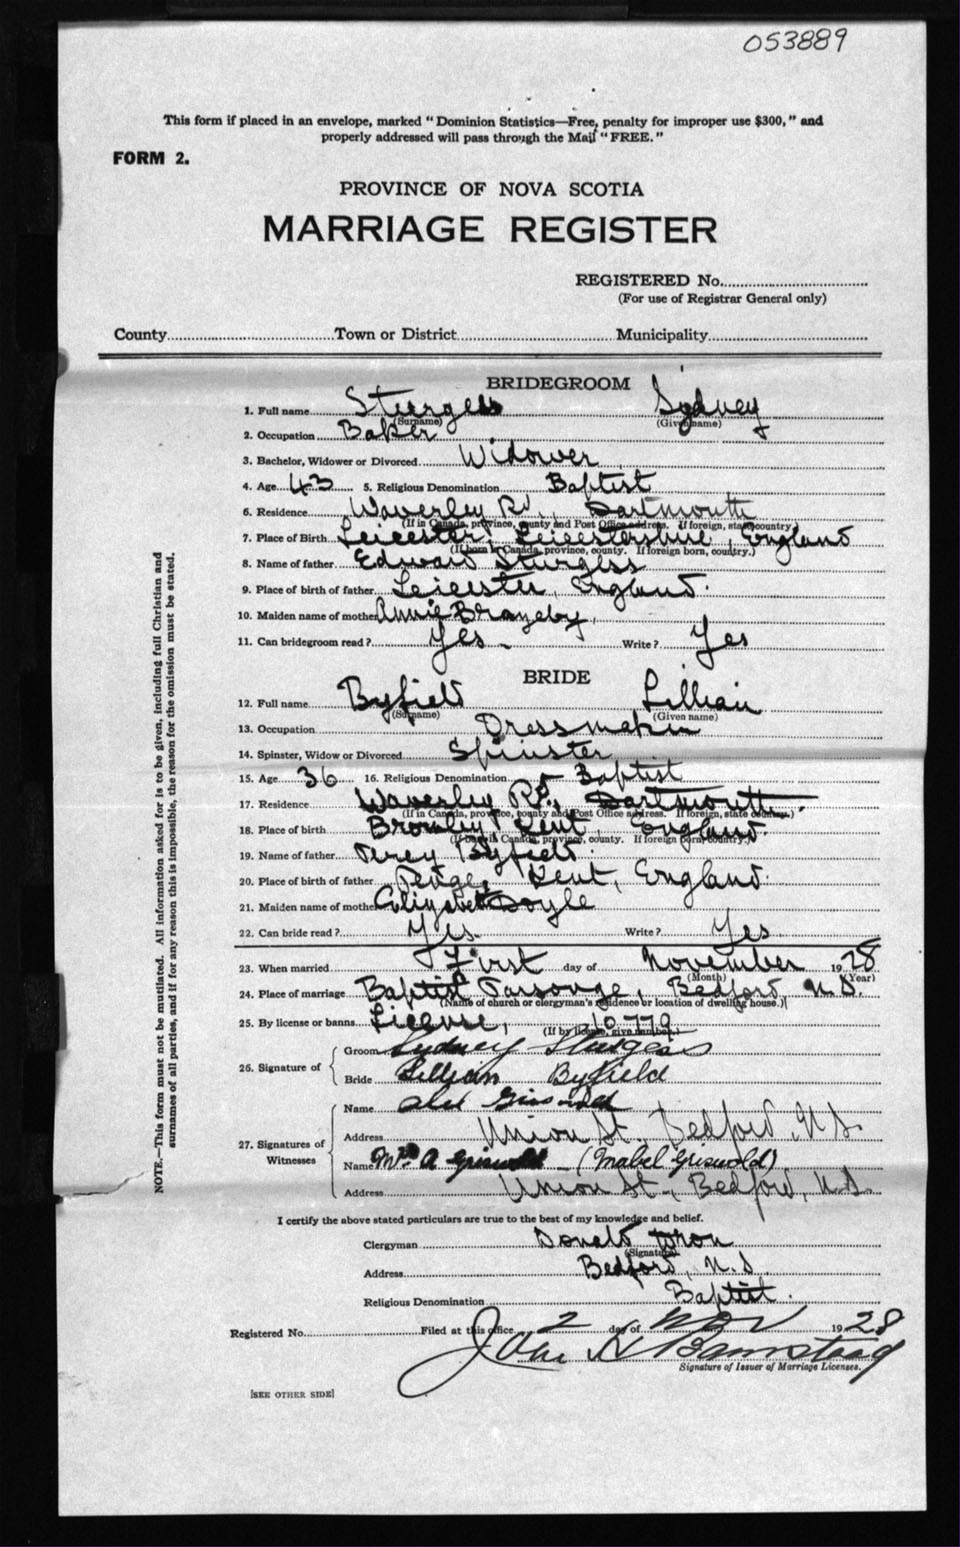 053889
This form if placed in an envelope, marked "Dominion Statistics—Free, penalty for improper use $300," and
properly addressed will pass through the Mail "FREE."
FORM 2.
PROVINCE OF NOVA SCOTIA
MARRIAGE REGISTER
REGISTERED No.
(For use of Registrar General only)
County Town or District Municipality
BRIDEGROOM
1. Full name Sturgess Sydney
(Surname) (Given name)
2. Occupation Baker
3. Bachelor, Widower or Divorced Widower
4. Age 43 5. Religious Denomination Baptist
6. Residence Waverley Rd., Dartmouth
(If in Canada, province, county and Post Office address. If foreign, state country)
7. Place of Birth Leicester, Leicestershire, England
(If born in Canada, province, county. If foreign born, country.)
8. Name of father Edward Sturgess
9. Place of birth of father Leicester, England.
10. Maiden name of mother Annie
11. Can bridegroom read? Yes. Write? Yes
BRIDE
12. Full name Byfield Lillian
(Surname) (Given name)
13. Occupation Dressmaker
14. Spinster, Widow or Divorced Spinster
15. Age 36 16. Religious Denomination Baptist
17. Residence Waverley Rd., Dartmouth.
(If in Canada, province, county and Post Office address. If foreign, state country.)
18. Place of birth Bromley Kent, England.
(If born in Canada, province, county. If foreign born, country.)
19. Name of father Percy Byfield.
20. Place of birth of father Penge, Kent, England.
21. Maiden name of mother Elizabeth Doyle
22. Can bride read? Yes. Write? Yes.
23. When married First day of November 1928
(Month) (Year)
24. Place of marriage Baptist Parsonge, Bedford, N.S.
(Name of church or clergyman's residence or location of dwelling house.)
25. By license or banns License, 10779
(If by license, give number.)
26. Signature of
Groom Sydney Sturgess
Bride Lillian Byfield
27. Signatures of Witnesses
Name Griswold
Address Union St. Bedford, N.S.
Name Mrs A Griswold - (Mabel Griswold)
Address Union St., Bedford, N.S.
I certify the above stated particulars are true to the best of my knowledge and belief.
Clergyman Donald
(Signature)
Address Bedford, N.S.
Religious Denomination Baptist.
Registered No. Filed at this office 2 day of Nov 1928
John H
Signature of Issuer of Marriage Licenses.
[SEE OTHER SIDE]
NOTE.—This form must not be mutilated. All information asked for is to be given, including full Christian and
surnames of all parties, and if for any reason this is impossible, the reason for the omission must be stated.